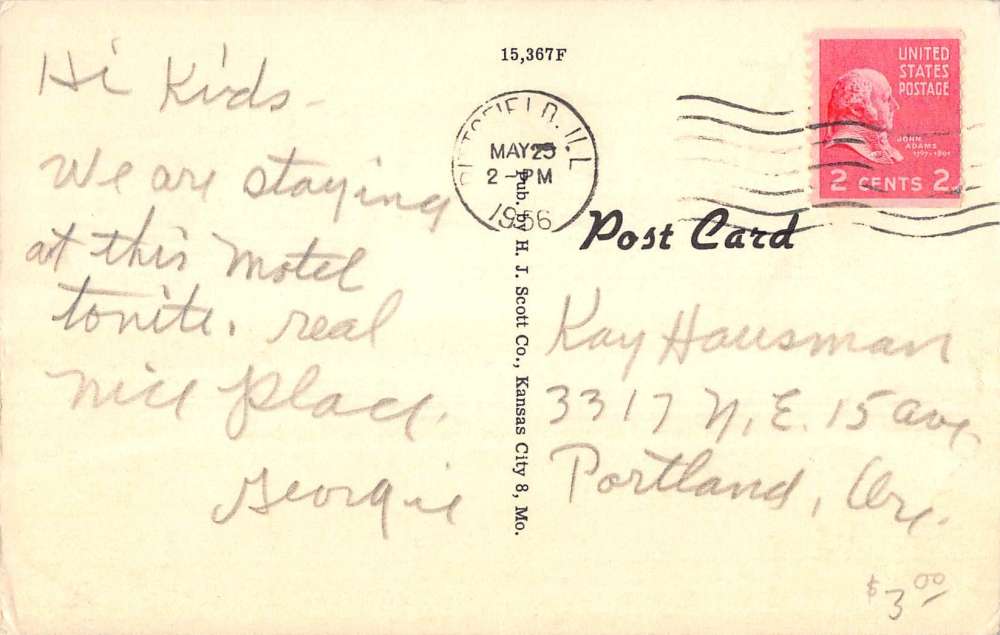 Hi Kids -
We are staying
at this Motel
tonite. real
nice place.
Georgie
15,367F
PITTSFIELD. ILL
MAY 25
2 - PM
1956
UNITED
STATES
POSTAGE
JOHN
ADAMS
1797-1801
2 CENTS 2
Post Card
Pub. by H. J. Scott Co., Kansas City 8, Mo.
Kay Hausman
3317 N.E. 15 ave.
Portland, Ore.
$3.00